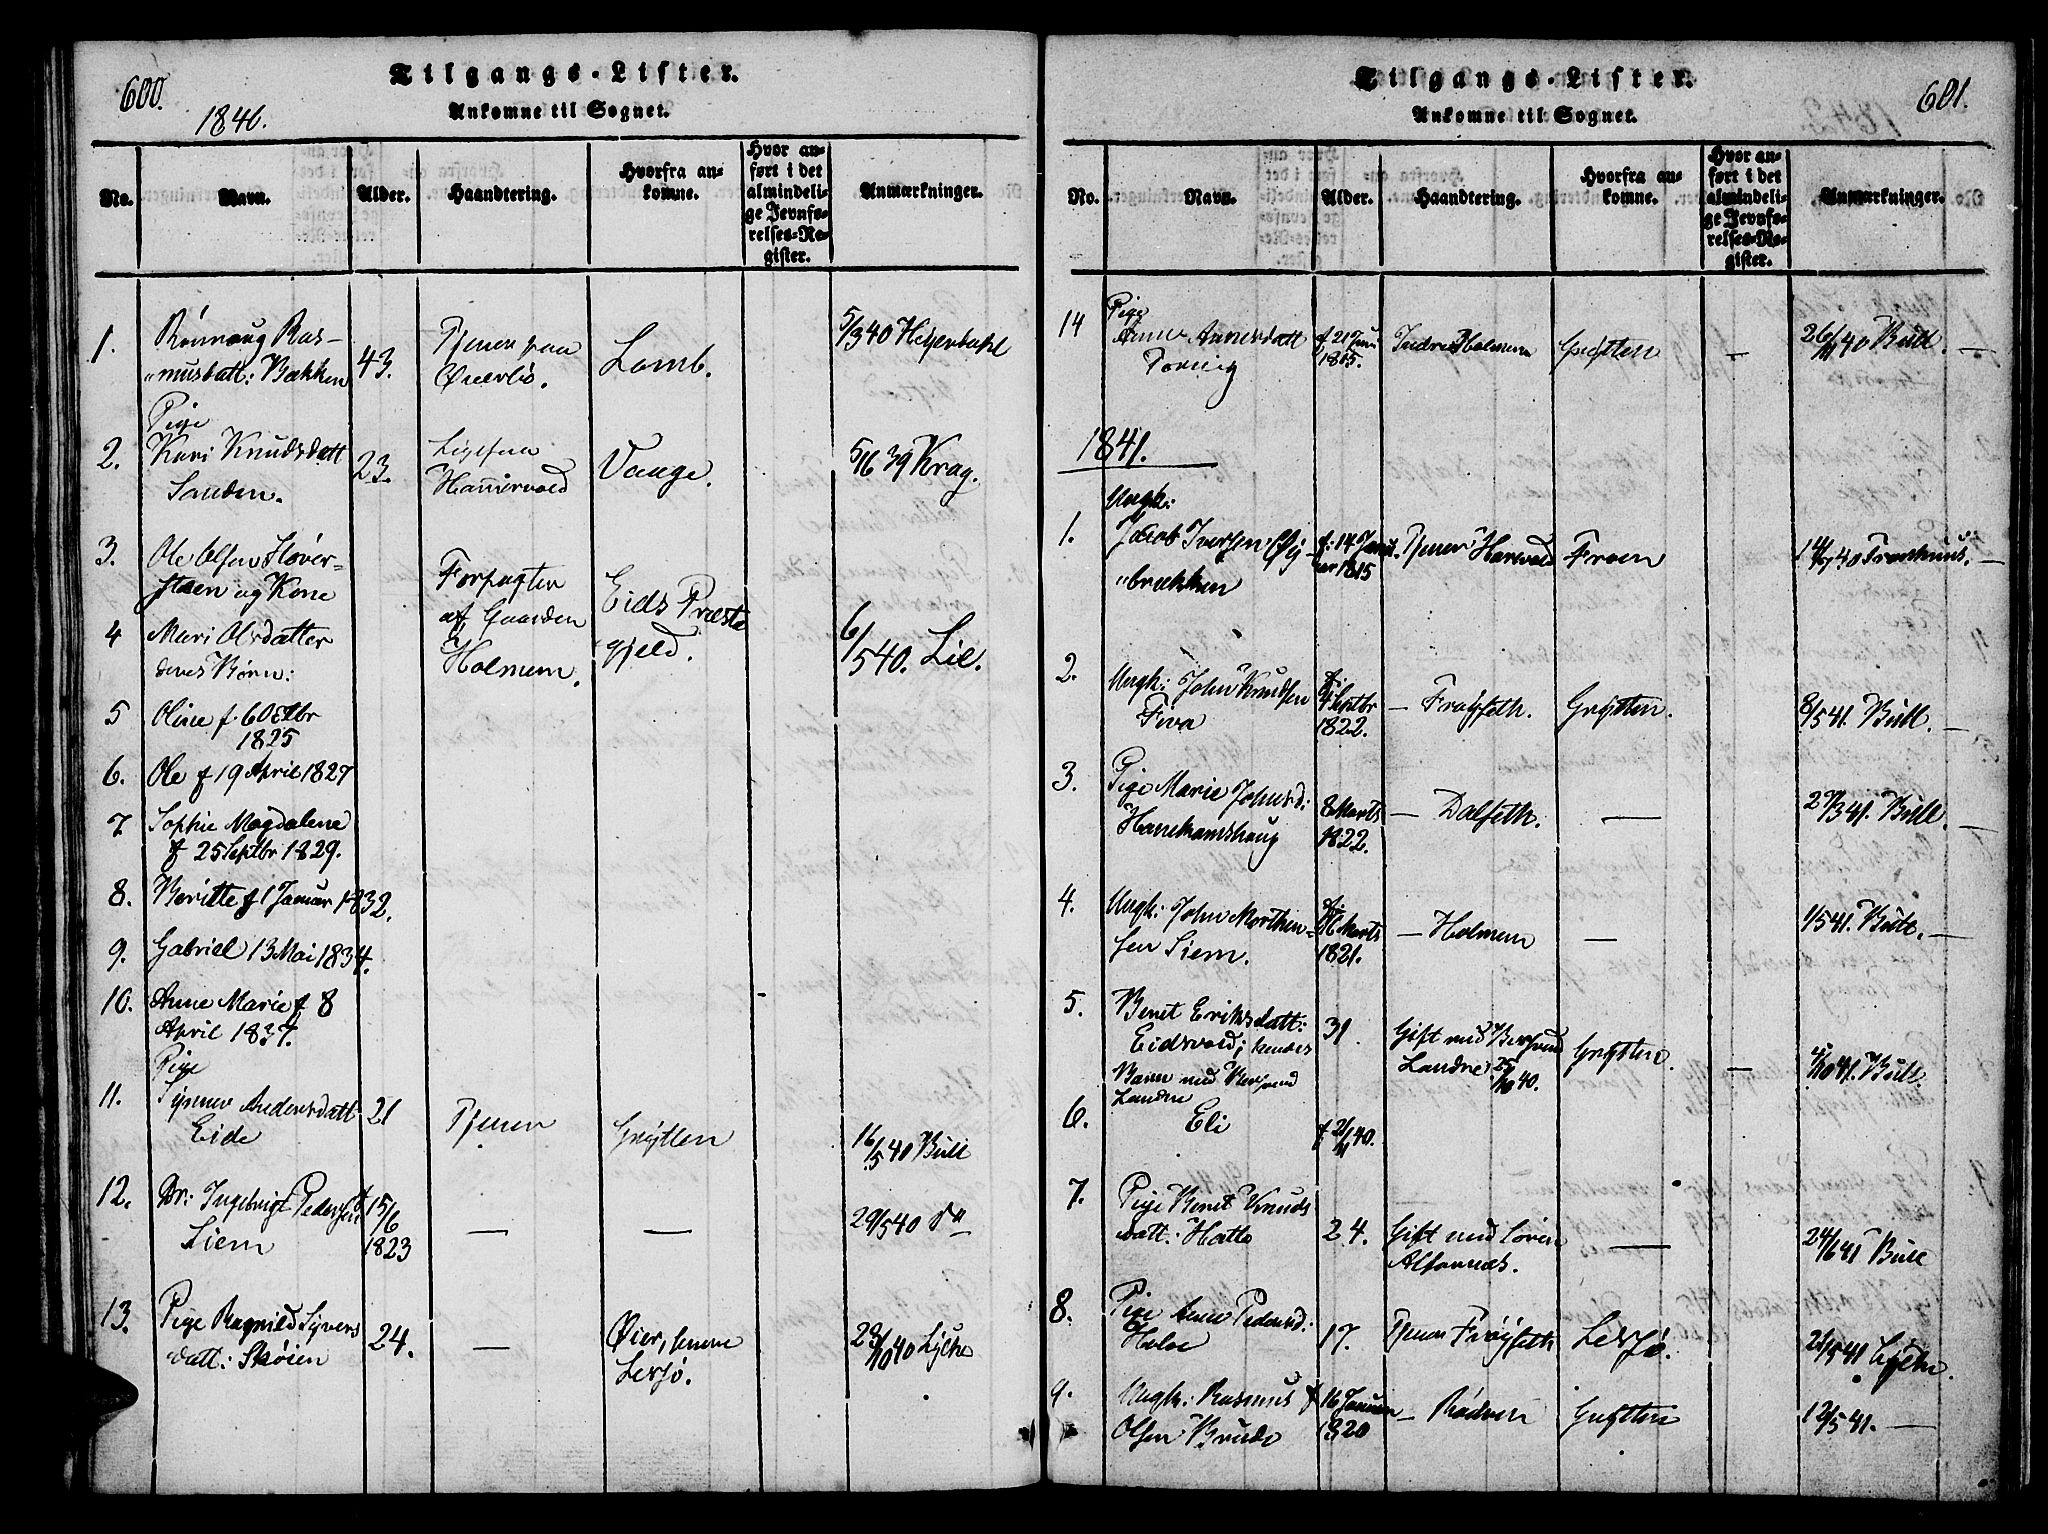 600.
Tilgangs-Lister.
1840.
Ankomne til Sognet.
No.
Navn.
Alder.
Haandtering.
Hvorfra an-
komne.
Hvor an-
ført i det
almindeli-
ge Jevnfø-
relses-Re-
gister.
Anmærkninger.
1. Rønnaug Ras-
musdatt: Bækken
43.
Tjener paa
Lomb.
5/3 40
Pige
2. Kari Knudsdatt
Sanden.
23.
Vaage.
5/6 39 Krag.
3. Ole Olsen
og Kone
4 Mari Olsdatter
deres Børn:
Forpagter
af Gaarden
Holmem.
Eids Præste
gjeld.
6/5 40. Lie.
5 Oline f. 6 Octbr
1825
6. Ole f 19 April 1827
7 Sophie Magdalene
f 25 Septbr 1829.
8. Beritte f 1 Januar 1832.
9. Gabriel 13 Mai 1834.
10. Anne Marie f 8
April 1837.
Pige
11. Synnev Andersdatt
Eide
21
Tjener
Grytten
16/5 40 Bull
12. Dr: Ingebrigt Pedersen
Siem
15/6
1823
—
—
29/5 40 Do
13. Pige Ragnild Syvers
datt: Skøien
24.
—
Øier,
Lesjø.
23/10 40
601.
Tilgangs-Lister.
Ankomne til Sognet.
No.
Navn.
Alder.
Haandtering.
Hvorfra an-
komne.
Hvor an-
ført i det
almindeli-
ge Jevnfø-
relses-Re-
gister.
Anmærkninger.
14 Pige
Anne Annersdatt
f. 21 Juni
1805.
Indre Holmem
Grytten
—
26/11 40 Bull. —
1841.
1. Ungk:
Jacob Iversen Øy-
brækken
f. 14 Janu
ar 1815
Tjener
Froen
—
2. Ungk: John Knudsen
Fiva
f.
Septbr
1822.
— Frøyseth.
Grytten.
8/5 41. Bull. —
3. Pige Marie Johnsd:
Hanekamshaug
8 Marts
1822.
— Dalseth.
—
29/3 41. Bull. —
4. Ungk: John Morthen-
sen Siem.
f.
16 Marts
1821.
— Holmem
—
1/5 41. Bull. —
5. Beret Eriksdatt:
Eidsvold; hendes
Barn med
Landre
31
Gift med
Landre 25/10 40.
Grytten.
—
4/10 41. Bull.
6. Eli
f 21/11 40.
7. Pige Beret Knuds
datt: Hatle
24.
Gift med Søren
Alfarnæs.
—
24/6 41 Bull
8. Pige Anne Pedersd:
17.
Tjener Frøyseth
Lesjø.
21/5 41
9. Ungk: Rasmus
Olsen Brude
f 16 Januar
1820
— Rødven
Grytten
12/5 41. —